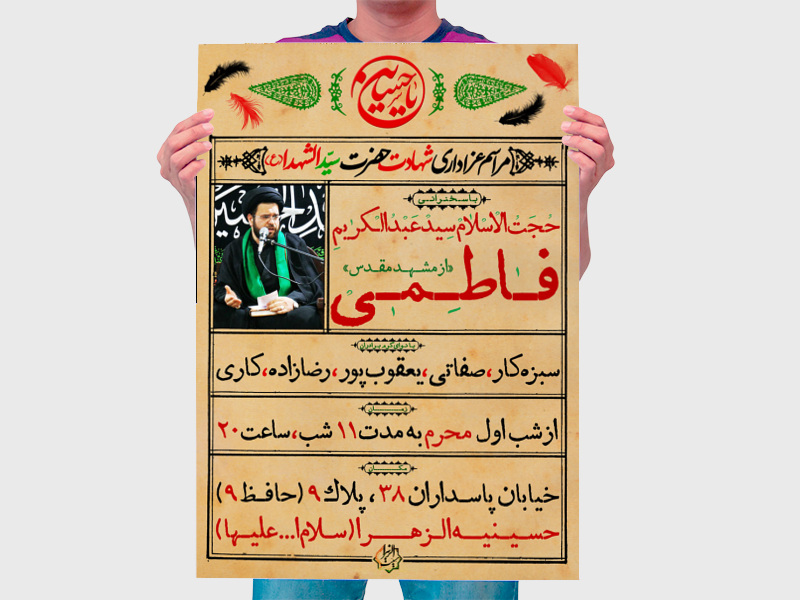 یا حسین
مراسم عزاداری شهادت حضرت سیّد الشهدا (ع)
با سخنرانی
حجت‌الاسلام سید عبدالکریم
«از مشهد مقدس»
فاطمی
با نوای گرم برادران
سبزه‌کار، صفاتی، یعقوب‌پور، رضازاده، کاری
زمان
از شب اول محرم به مدت ۱۱ شب، ساعت ۲۰
مکان
خیابان پاسداران ۳۸، پلاک ۹ (حافظ ۹)
حسینیه الزهرا (سلام ا... علیها)